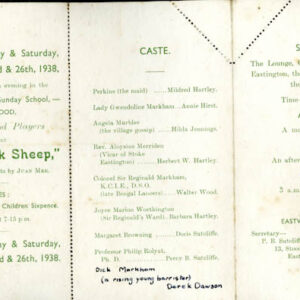 y & Saturday,
d & 26th, 1938,
evening in the
Sunday School,—
OOD,
d Players
k Sheep,"
ts by JUAN MEE.
ES :
Children Sixpence
7-15 p.m.
y & Saturday,
d & 26th, 1938.
CASTE.
Perkins (the maid) ...... Mildred Hartley.
Lady Gwendoline Markham ...... Annie Hirst.
Angela Marbles
(the village gossip) ...... Hilda Jennings.
Rev. Aloysius Merriden
(Vicar of Stoke
Eastington) ...... Herbert W. Hartley.
Colonel Sir Reginald Markham,
K.C.I.E., D.S.O.
(late Bengal Lancers) ...... Walter Wood.
Joyce Marion Worthington
(Sir Reginald's Ward). Barbara Hartley.
Margaret Browning ...... Doris Sutcliffe.
Professor Philip Rolyat,
Ph. D. ...... Percy B. Sutcliffe.
Dick Markham
(a rising young barrister)
Derek Dawson
S
The Lounge,
Eastington, the
Time
An
An after
a
3 a.m.
EASTW
Secretary—
P. B. Sutcliffe
13, Stone
East